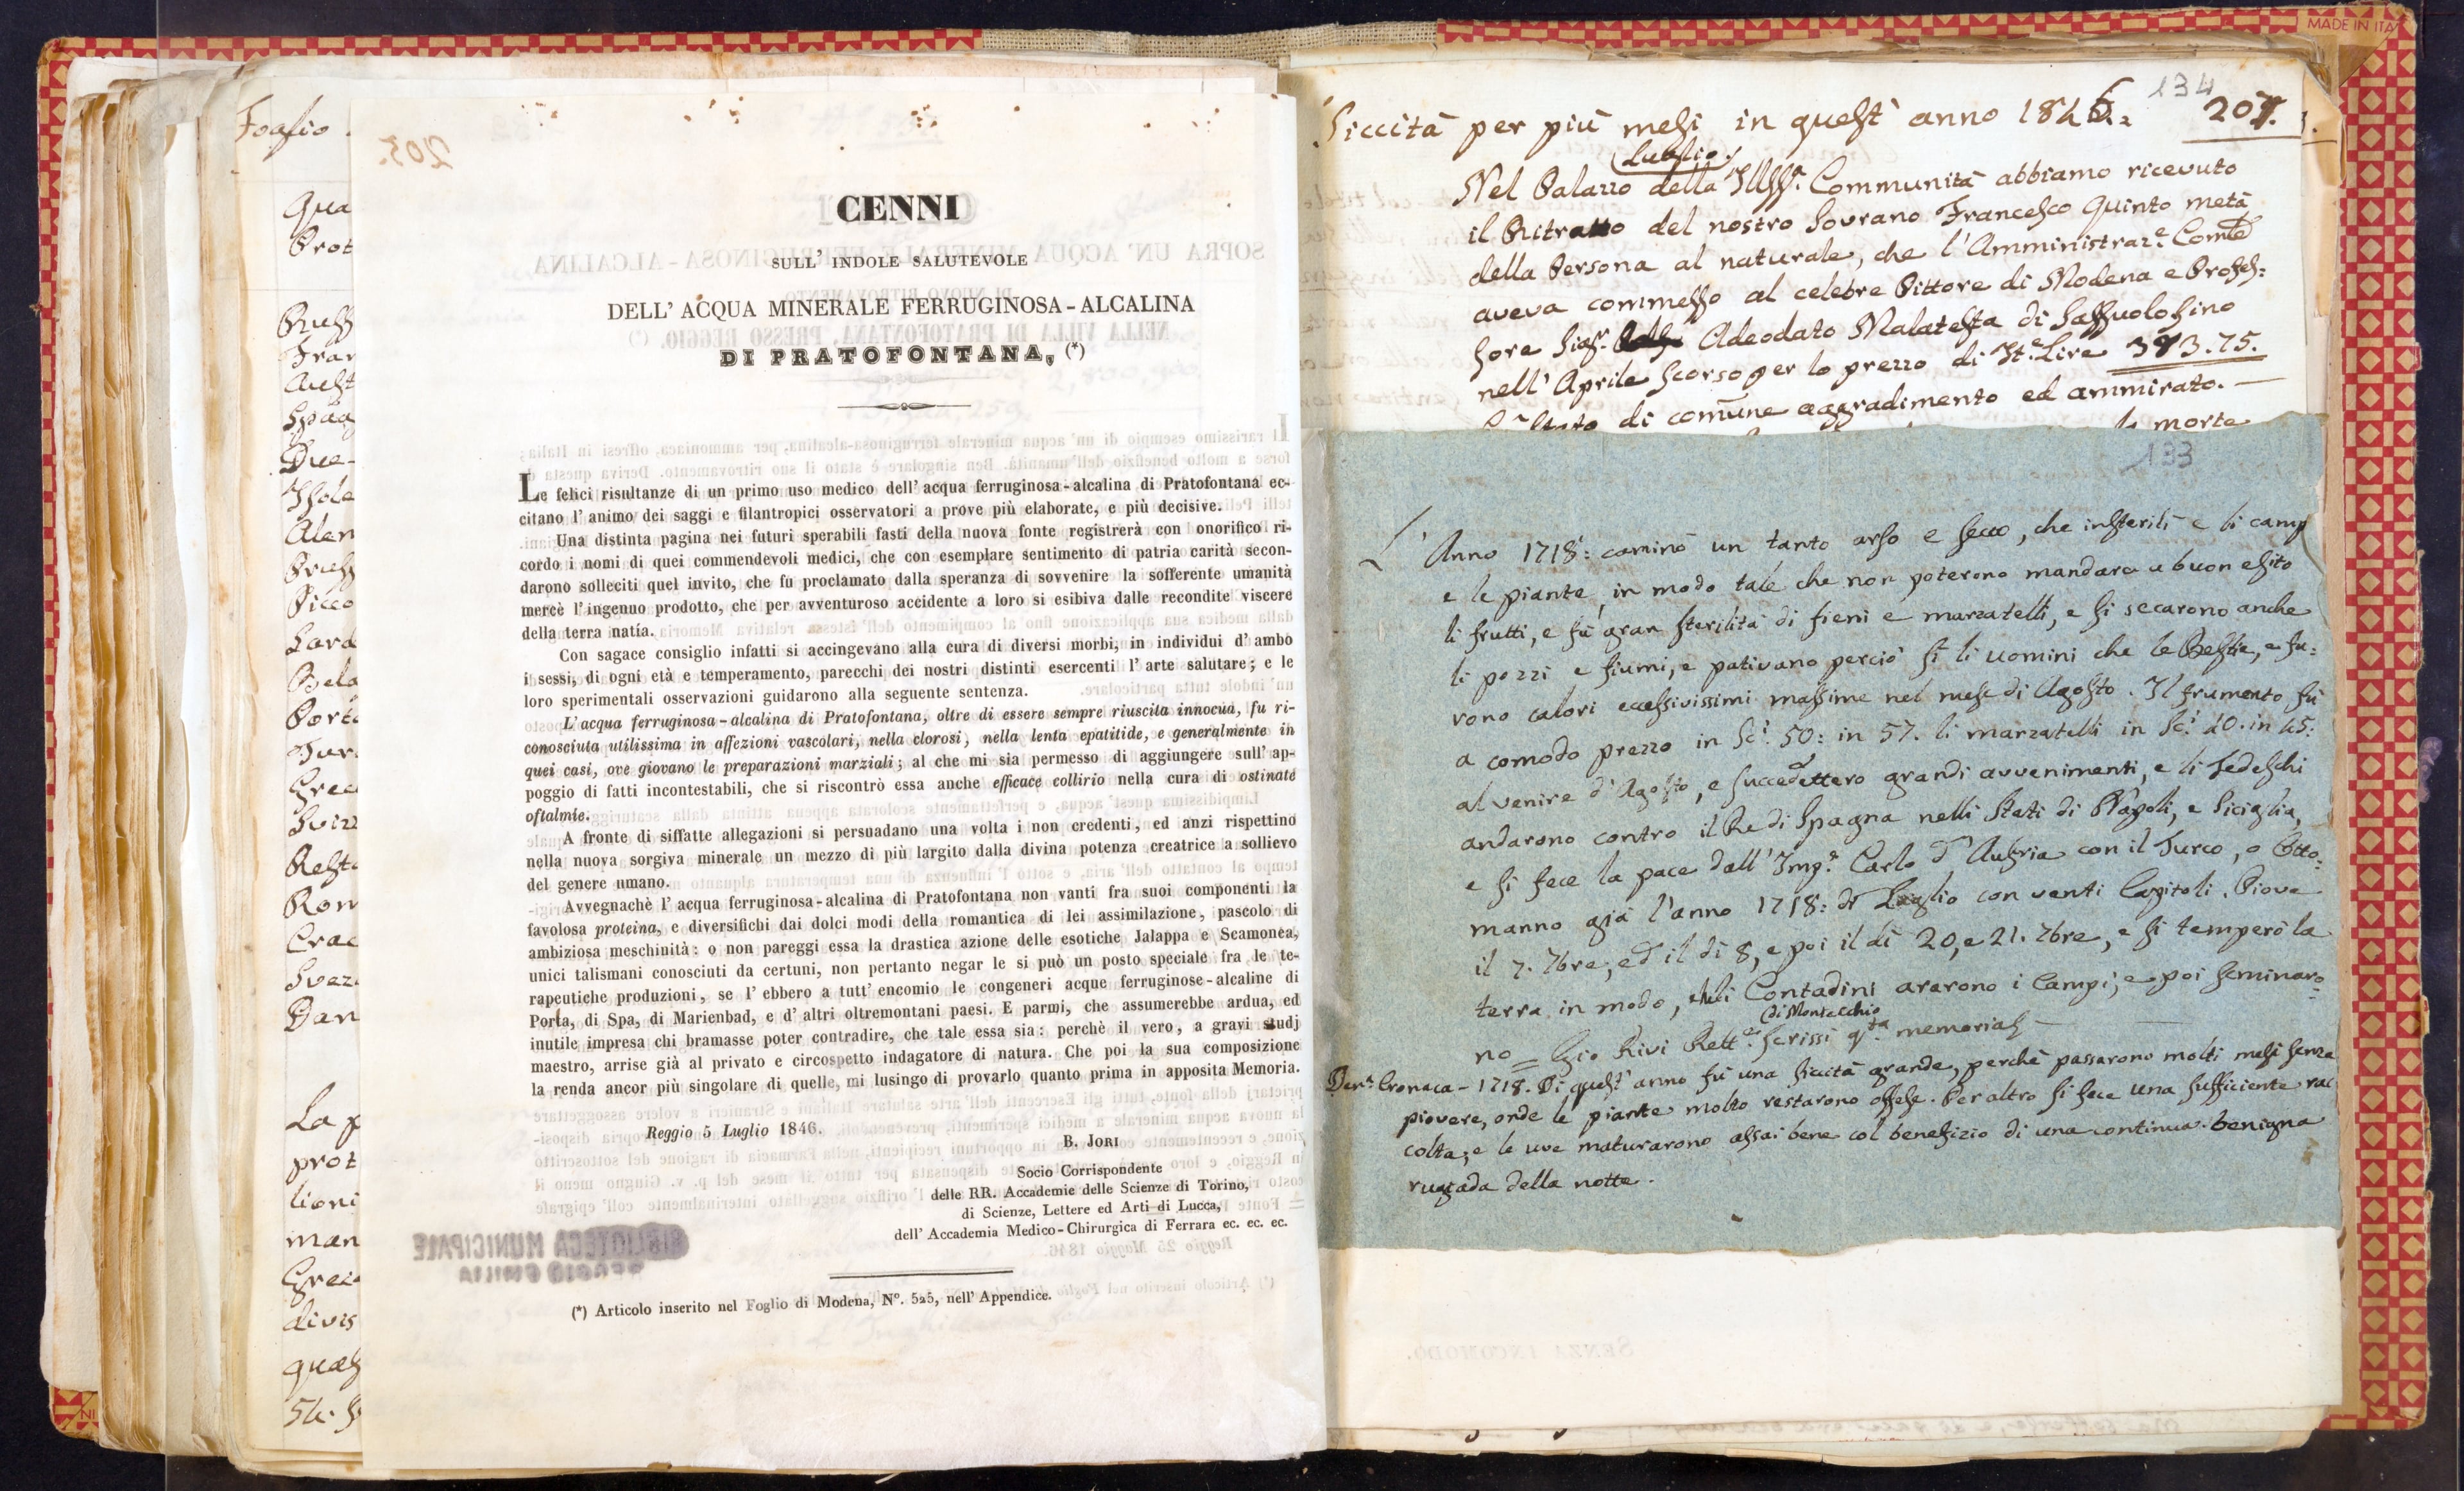 Foglio
Qua
Prot
Pruss
Fran
Aust
Spag
Due-
Isole
Alem
Pruss
Picco
Sard
Bela
Porto
Tur
Grec
Svizz
Resto
Rom
Crac
Svez
Dan
La p
prot
lioni
man
Grec
divis
quas
54. S
205.
CENNI
SULL' INDOLE SALUTEVOLE
DELL' ACQUA MINERALE FERRUGINOSA-ALCALINA
DI PRATOFONTANA, (*)
Le felici risultanze di un primo uso medico dell' acqua ferruginosa-alcalina di Pratofontana ec-
citano l' animo dei saggi e filantropici osservatori a prove più elaborate, e più decisive.
Una distinta pagina nei futuri sperabili fasti della nuova fonte registrerà con onorifico ri-
cordo i nomi di quei commendevoli medici, che con esemplare sentimento di patria carità secon-
darono solleciti quel invito, che fu proclamato dalla speranza di sovvenire la sofferente umanità
mercè l' ingenuo prodotto, che per avventuroso accidente a loro si esibiva dalle recondite viscere
della terra natía.
Con sagace consiglio infatti si accingevano alla cura di diversi morbi, in individui d' ambo
i sessi, di ogni età e temperamento, parecchi dei nostri distinti esercenti l' arte salutare; e le
loro sperimentali osservazioni guidarono alla seguente sentenza.
L' acqua ferruginosa-alcalina di Pratofontana, oltre di essere sempre riuscita innocua, fu ri-
conosciuta utilissima in affezioni vascolari, nella clorosi, nella lenta epatitide, e generalmente in
quei casi, ove giovano le preparazioni marziali; al che mi sia permesso di aggiungere sull' ap-
poggio di fatti incontestabili, che si riscontrò essa anche efficace collirio nella cura di ostinate
oftalmie.
A fronte di siffatte allegazioni si persuadano una volta i non credenti, ed anzi rispettino
nella nuova sorgiva minerale un mezzo di più largito dalla divina potenza creatrice a sollievo
del genere umano.
Avvegnachè l' acqua ferruginosa-alcalina di Pratofontana non vanti fra suoi componenti la
favolosa proteina, e diversifichi dai dolci modi della romantica di lei assimilazione, pascolo di
ambiziosa meschinità: o non pareggi essa la drastica azione delle esotiche Jalappa e Scamonea,
unici talismani conosciuti da certuni, non pertanto negar le si può un posto speciale fra le te-
rapeutiche produzioni, se l' ebbero a tutt' encomio le congeneri acque ferruginose-alcaline di
Porta, di Spa, di Marienbad, e d' altri oltremontani paesi. E parmi, che assumerebbe ardua, ed
inutile impresa chi bramasse poter contradire, che tale essa sia: perchè il vero, a gravi studj
maestro, arrise già al privato e circospetto indagatore di natura. Che poi la sua composizione
la renda ancor più singolare di quelle, mi lusingo di provarlo quanto prima in apposita Memoria.
Reggio 5 Luglio 1846.
B. JORI
Socio Corrispondente
delle RR. Accademie delle Scienze di Torino,
di Scienze, Lettere ed Arti di Lucca,
dell' Accademia Medico-Chirurgica di Ferrara ec. ec. ec.
BIBLIOTECA MUNICIPALE
REGGIO EMILIA
(*) Articolo inserito nel Foglio di Modena, N°. 525, nell' Appendice.
MADE IN ITA
134
Siccità per più mesi in quest' anno 1846. 207.
Luglio.
Nel Palazzo della Illss.a Communità abbiamo ricevuto
il Ritratto del nostro Sovrano Francesco Quinto metà
della Persona al naturale, che l' Amministraz.e Com.te
aveva commesso al celebre Pittore di Modena e Profes=
sore Sig.r Adeodato Malatesta di Sassuolo sino
nell' Aprile scorso per lo prezzo di It.e Lire 383.75.
di comune aggradimento ed ammirato. —
la morte
133
L' Anno 1718: caminò un tanto arso e secco, che insterilì e li camp
e le piante, in modo tale che non poterono mandare a buon esito
li frutti, e fù gran sterilità di fieni e marzatelli, e si secarono anche
li pozzi e fiumi, e pativano perciò sì li uomini che le Bestie, e fu=
rono calori eccessivissimi massime nel mese di Agosto. Il frumento fù
a comodo prezzo in Sc.i 50: in 57. li marzatelli in Sc.i 40. in 45:
al venire d' Agosto, e succedettero grandi avvenimenti, e li Tedeschi
andarono contro il Re di Spagna nelli Stati di Napoli, e Siciglia,
e si fece la pace dall' Imp.e Carlo d' Austria con il Turco, o Otto=
manno già l' anno 1718: di Luglio con venti Capitoli. Piove
il 7. 7bre, ed il dì 8, e poi il dì 20, e 21. 7bre, e si temperò la
terra in modo, che li Contadini ararono i Campi, e poi seminaro=
di Montecchio
no = Gio Rivi Rett.e scrissi q.ta memoria —
Den.e Cronaca - 1718. Di quest' anno fù una siccità grande, perchè passarono molti mesi senza
piovere, onde le piante molto restarono offese. Per altro si fece una sufficiente rac
colta; e le uve maturarono assai bene col benefizio di una continua benigna
rugiada della notte.